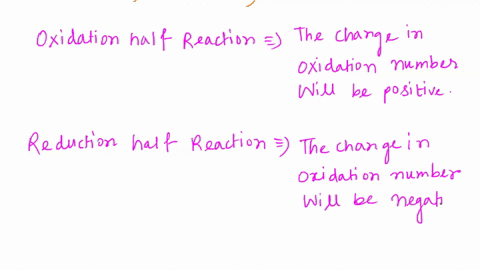 Oxidation half Reaction ⇒) The change in
oxidation number
Will be positive.
Reduction half Reaction ⇒) The change in
oxidation number
Will be negat